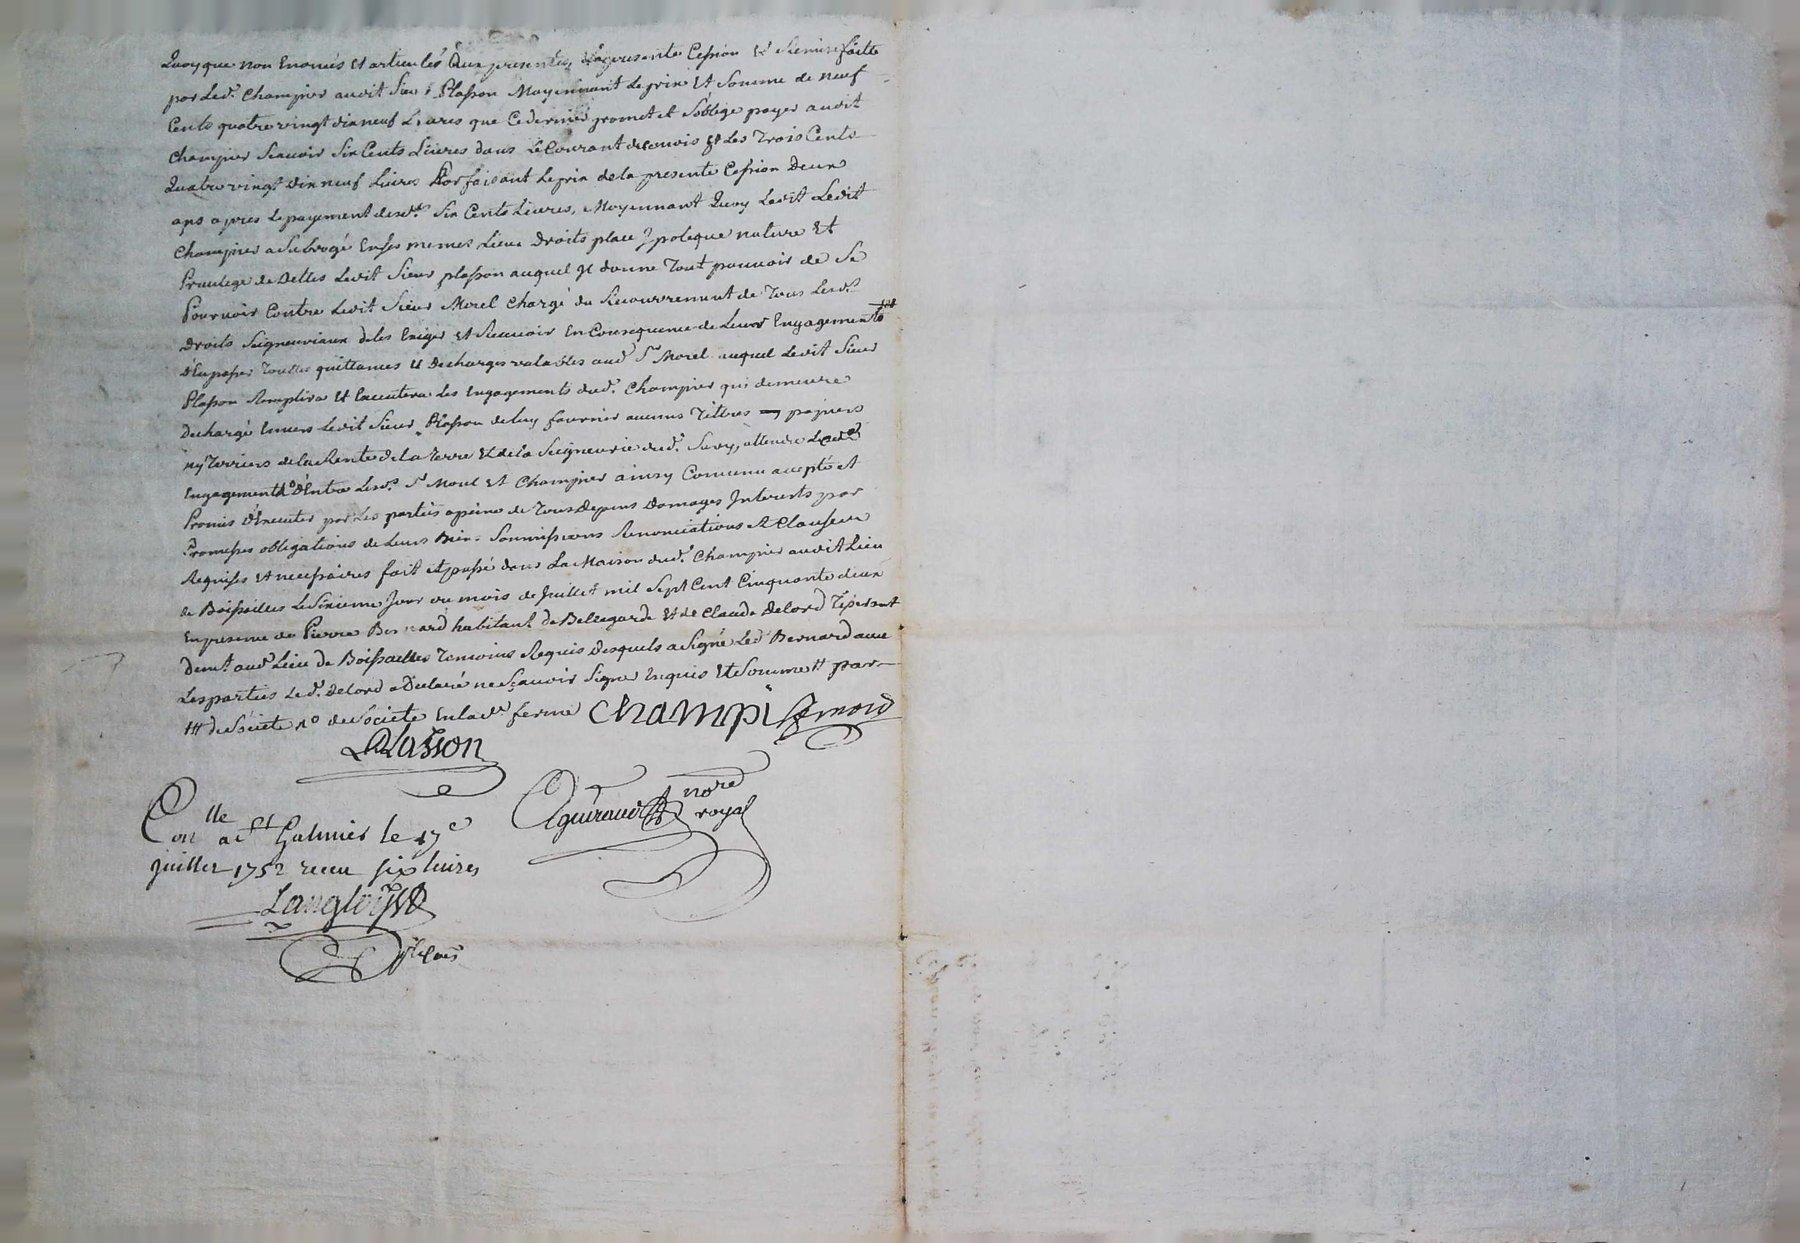 Quoyque non Enoncés et articulés Aux presentes, la presente Cession et Remise faitte
par Led. Champier audit Sieur Plasson Moyennant Le prix Et Somme de neuf
Cents quatre vingt dix neuf Livres que Ce dernier promet et S'oblige payer audit
Champier Scauoir Six Cents Liures dans Le Courant du mois Et Les Trois Cents
Quatre vingt dix neuf Liures faisant Le prix de la presente Cession Deux
ans apres Le payement desd. Six Cents Liures, Moyennant Quoy Ledit Ledit
Champier a Subrogé En ses memes Lieux Droits place ypoteque nature Et
Priuilege de Dettes Ledit Sieur plasson auquel Il donne Tout pouuoir de Se
Pouruoir Contre Ledit Sieur Morel Chargé du Recouurement de Tous Lesd.
Droits Seigneuriaux de les Exiger Et Receuoir En Consequence de Leurs Engagements
D'En passer Touttes quittances Et Decharges valables aud. Sr Morel auquel Ledit Sieur
Plasson Remplira Et Executera Les Engagements dud. Champier qui demeure
Dechargé Enuers Ledit Sieur Plasson de luy fournir aucuns Titres papiers
ny Terriers de la Rente de la Terre Et de la Seigneurie dud. Sury, attendu Lesd.
Engagements D'Entre Lesd. Sr Morel Et Champier ainsy Conuenu accepté et
Promis d'Executer par Les parties a peine de Tous Depens Domages Interests par
Promesses obligations de Leurs Biens Soumissions Renonciations Et Clauses
Requises Et necessaires fait Et passé dans La Maison dud. Champier audit Lieu
de Boissailles Le Sixieme Jour du mois de Juillet mil Sept Cent Cinquante deux
En presence de Pierre Bernard habitant de Bellegarde Et de Claude Delord
demt. aud. Lieu de Boissailles Temoins Requis Desquels a Signé Led. Bernard auec
Les parties Led. Delord a Declaré ne Sçauoir Signer Enquis Et Sommé par
de Societe de Societe En lad. ferme Champier
Plasson
nore
royal
Conlle a St Galmier le 17e
Juillet 1752 receu six liures
Langlois